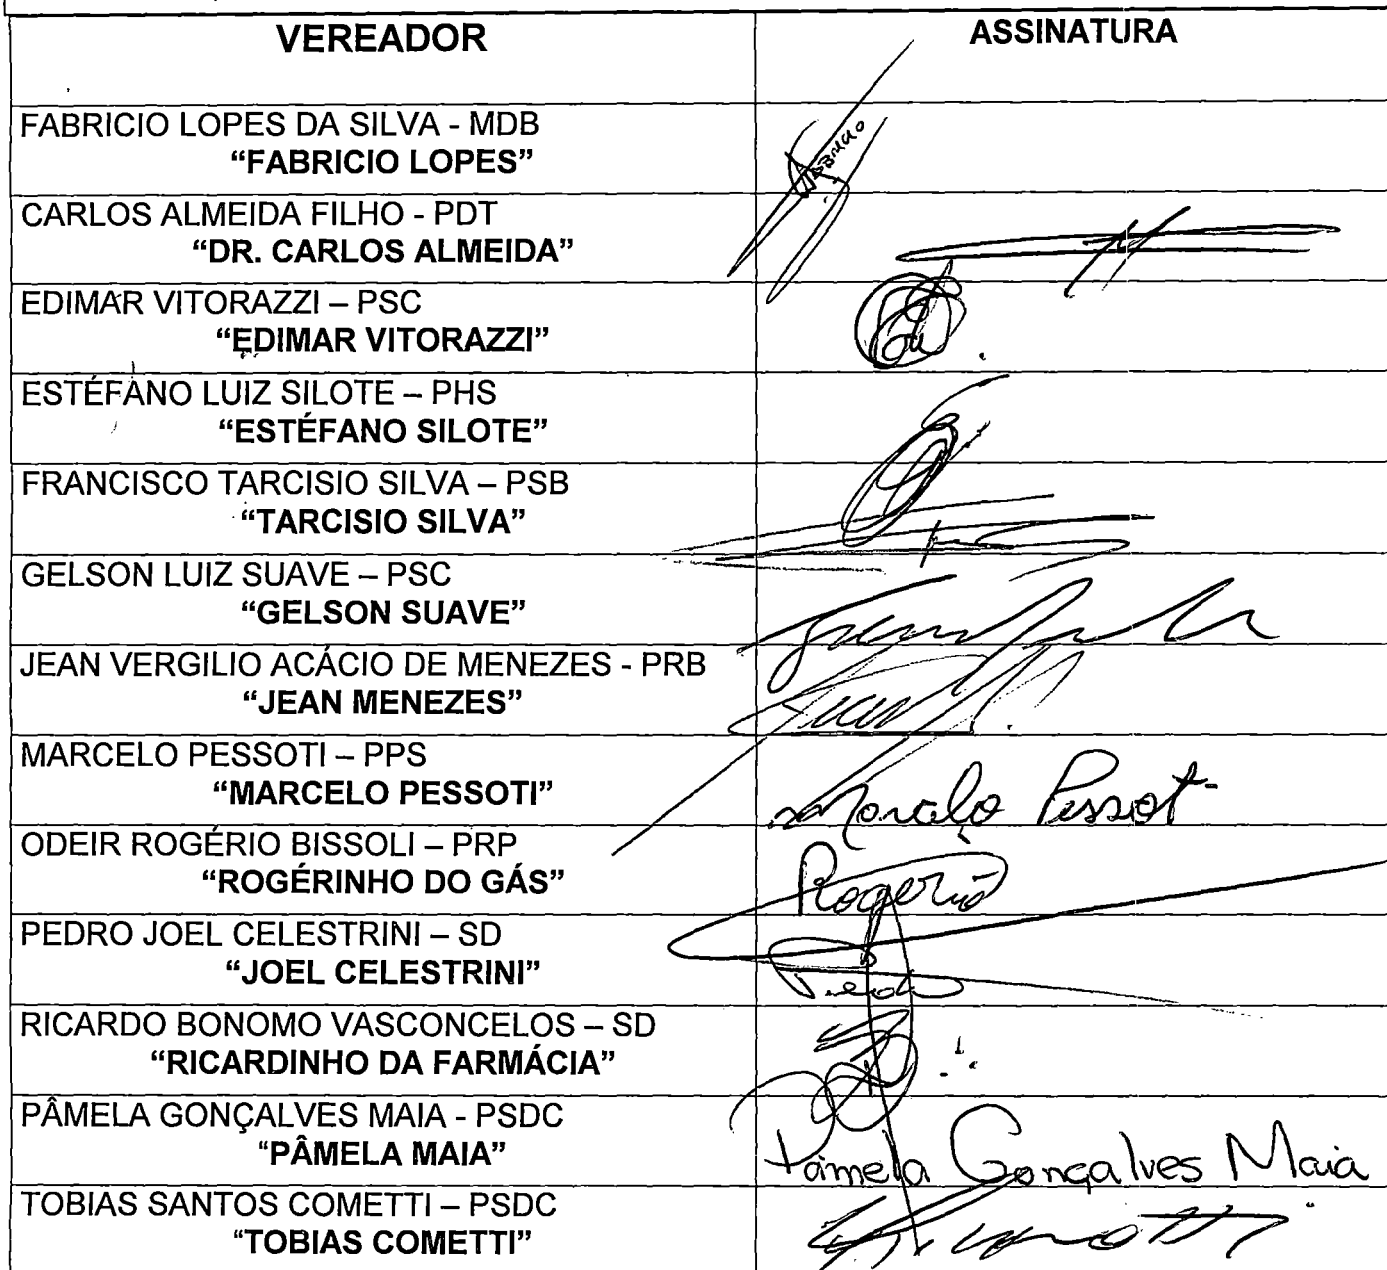 VEREADOR
ASSINATURA
FABRICIO LOPES DA SILVA - MDB
“FABRICIO LOPES”
CARLOS ALMEIDA FILHO - PDT
“DR. CARLOS ALMEIDA”
EDIMAR VITORAZZI – PSC
“EDIMAR VITORAZZI”
ESTÉFANO LUIZ SILOTE – PHS
“ESTÉFANO SILOTE”
FRANCISCO TARCISIO SILVA – PSB
“TARCISIO SILVA”
GELSON LUIZ SUAVE – PSC
“GELSON SUAVE”
JEAN VERGILIO ACÁCIO DE MENEZES - PRB
“JEAN MENEZES”
MARCELO PESSOTI – PPS
“MARCELO PESSOTI”
Marcelo Pessoti
ODEIR ROGÉRIO BISSOLI – PRP
“ROGÉRINHO DO GÁS”
Rogério
PEDRO JOEL CELESTRINI – SD
“JOEL CELESTRINI”
Pedro
RICARDO BONOMO VASCONCELOS – SD
“RICARDINHO DA FARMÁCIA”
PÂMELA GONÇALVES MAIA - PSDC
“PÂMELA MAIA”
Pâmela Gonçalves Maia
TOBIAS SANTOS COMETTI – PSDC
“TOBIAS COMETTI”